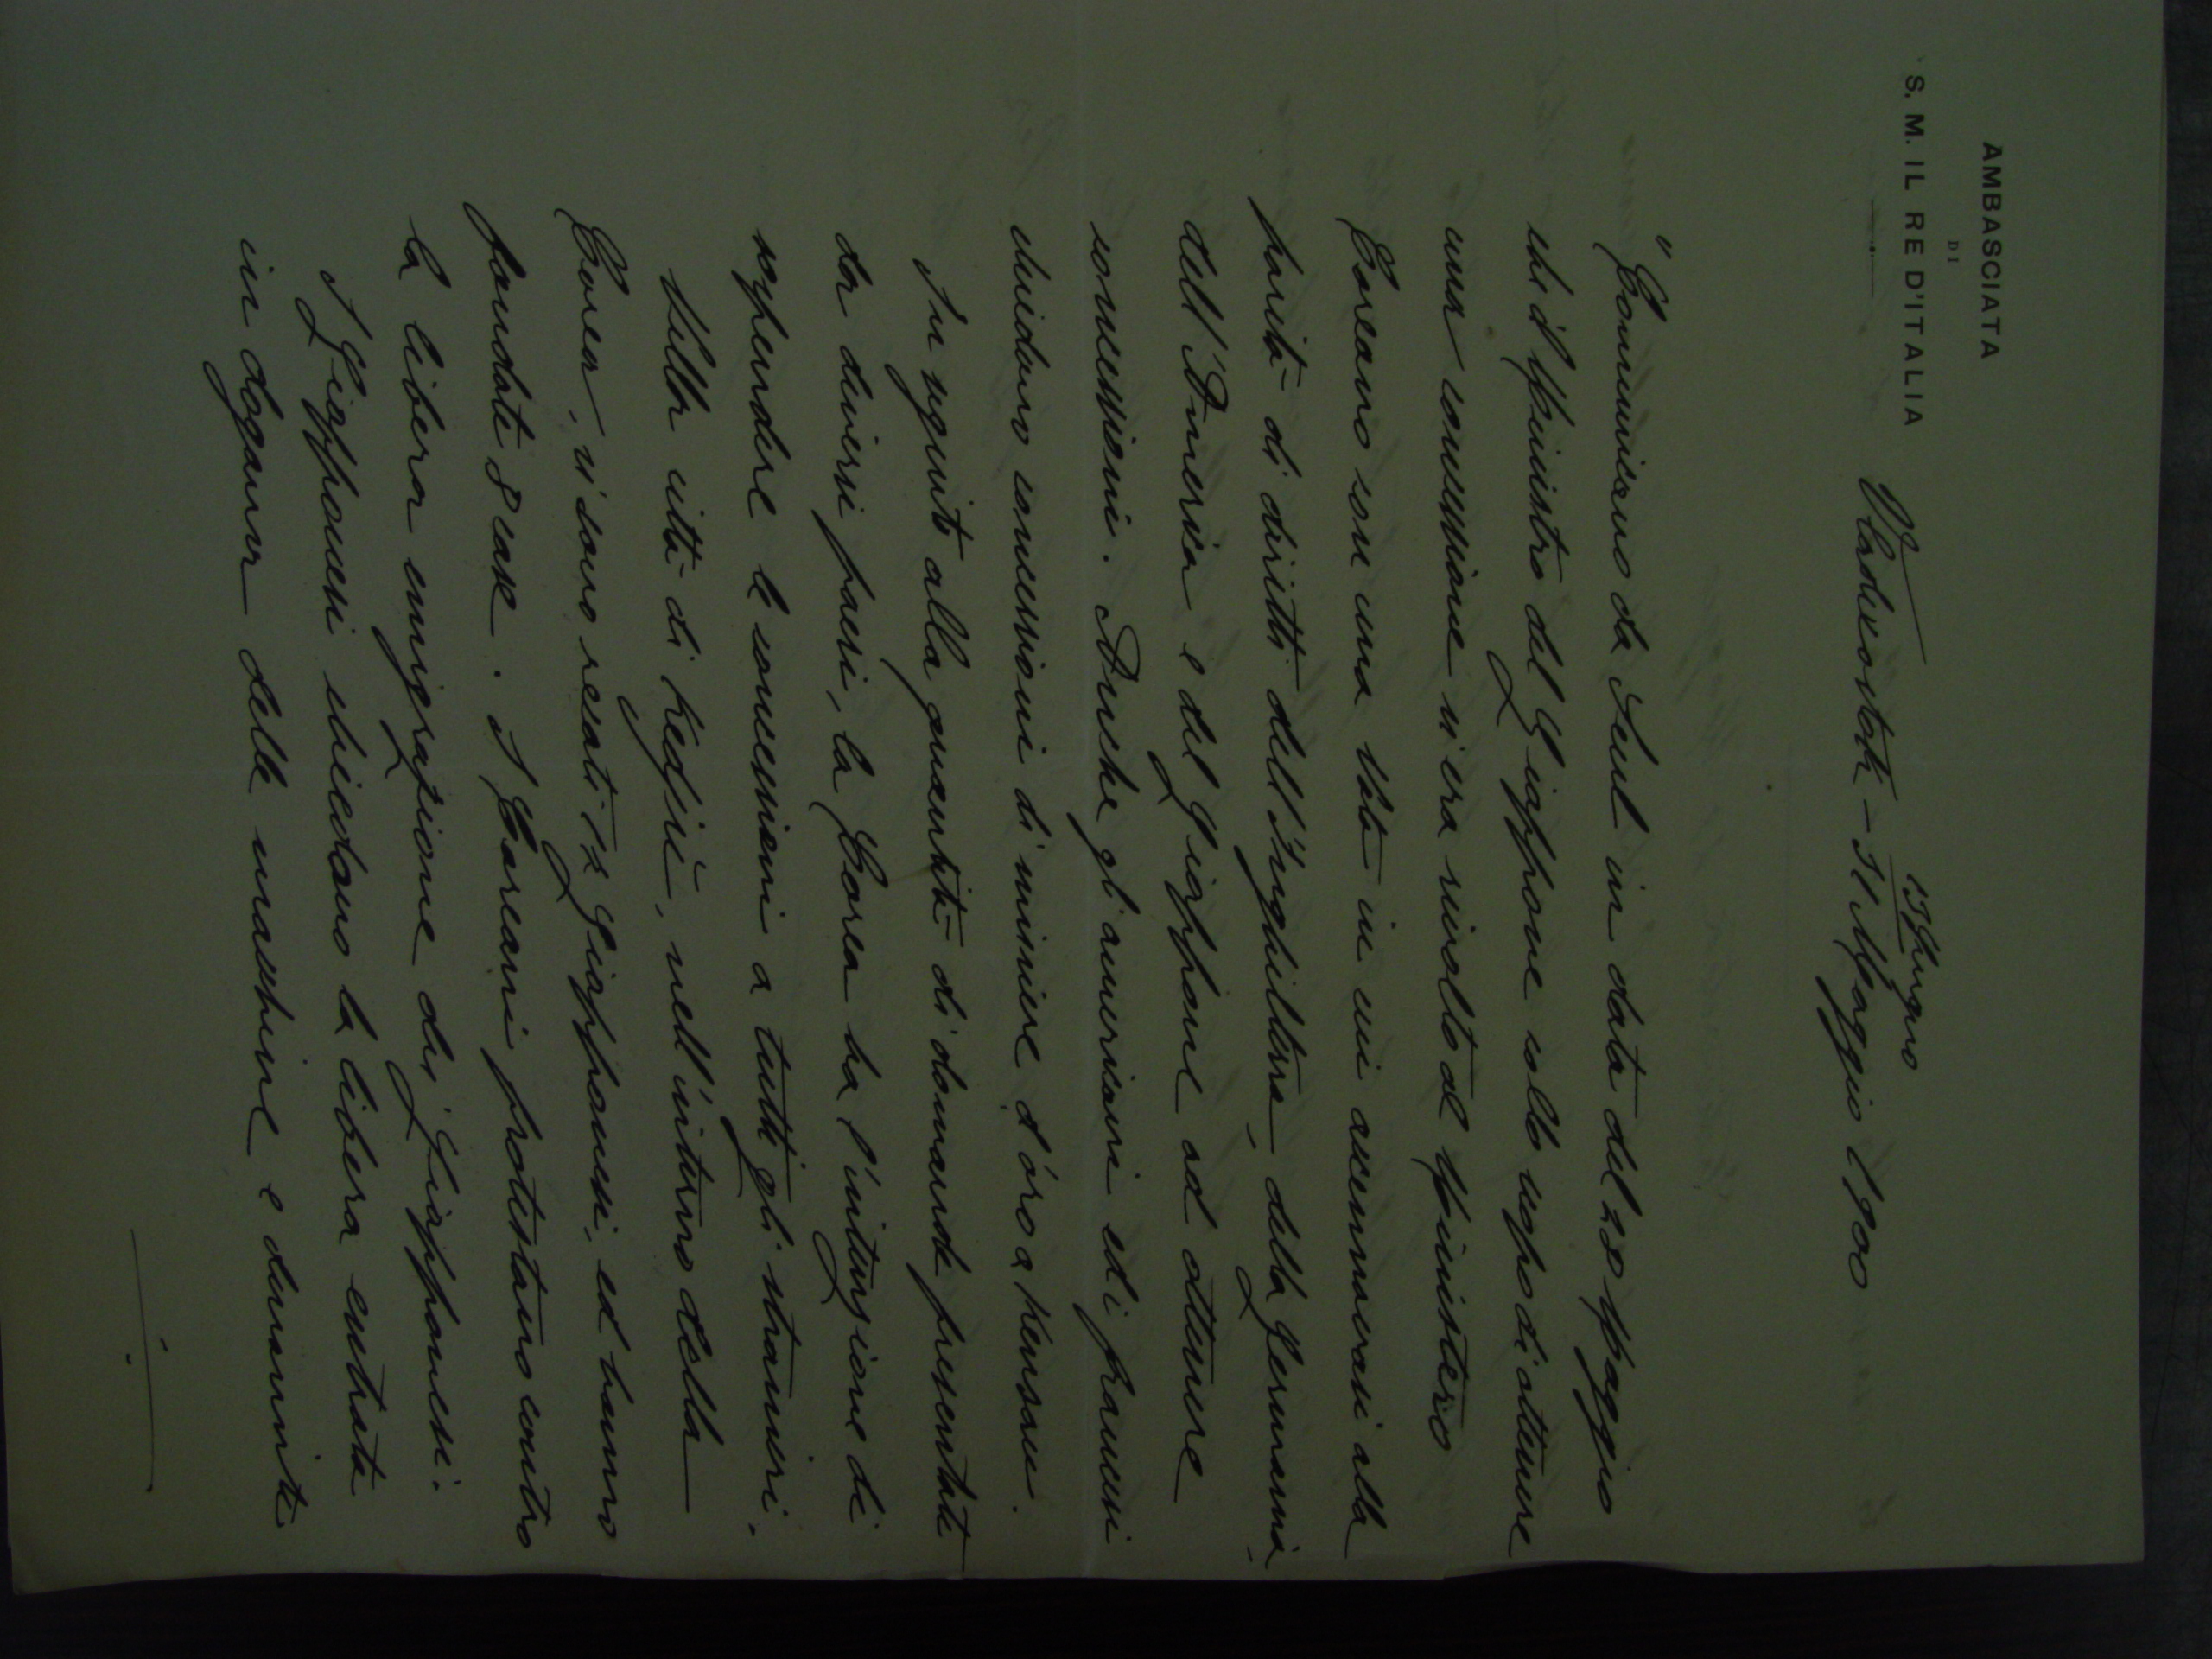 AMBASCIATA
DI
S. M. IL RE D'ITALIA
13 Giugno
Vladivostok - 31 Maggio 1900
"Comunicano da Seul in data del 28 Maggio
che il Ministro del Giappone collo scopo di ottenere
una concessione si era rivolto al Ministero
Coreano con una Nota in cui accennavasi alla
parità di diritti dell'Inghilterra, della Germania,
dell'America e del Giappone ad ottenere
concessioni. Anche gli americani ed i francesi
chiedono concessioni di miniere d'oro a Pensan.
In seguito alla quantità di domande presentate
da diversi paesi, la Corea ha l'intenzione di
sospendere le concessioni a tutti gli stranieri.
Nella città di, nell'interno della
Corea, si sono recati 12 Giapponesi, ed hanno
fondate 8 case. I Coreani protestano contro
la libera emigrazione dei Giapponesi.
I Giapponesi chiedono la libera entrata
in dogana delle macchine e dinamite
./.